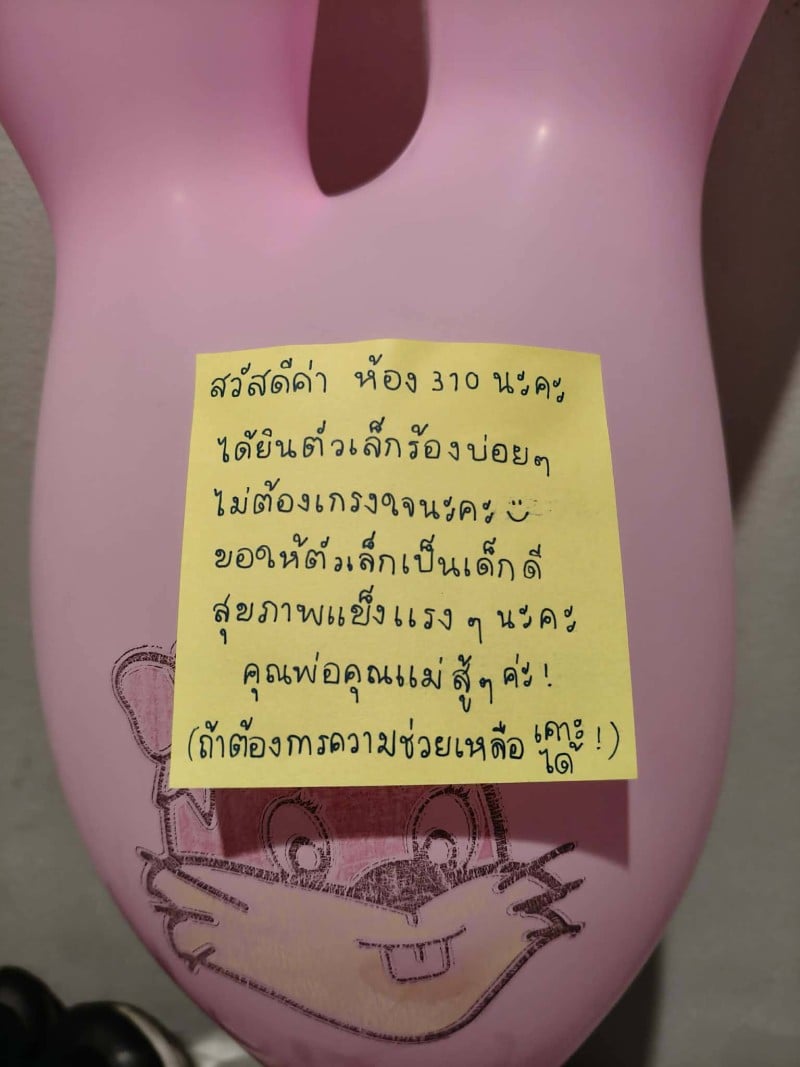 สวัสดีค่า ห้อง 310 นะคะ
ได้ยินตัวเล็กร้องบ่อยๆ
ไม่ต้องเกรงใจนะคะ
ขอให้ตัวเล็กเป็นเด็กดี
สุขภาพแข็งแรง ๆ นะคะ
คุณพ่อคุณแม่ สู้ๆ ค่ะ!
(ถ้าต้องการความช่วยเหลือ เคาะได้!)